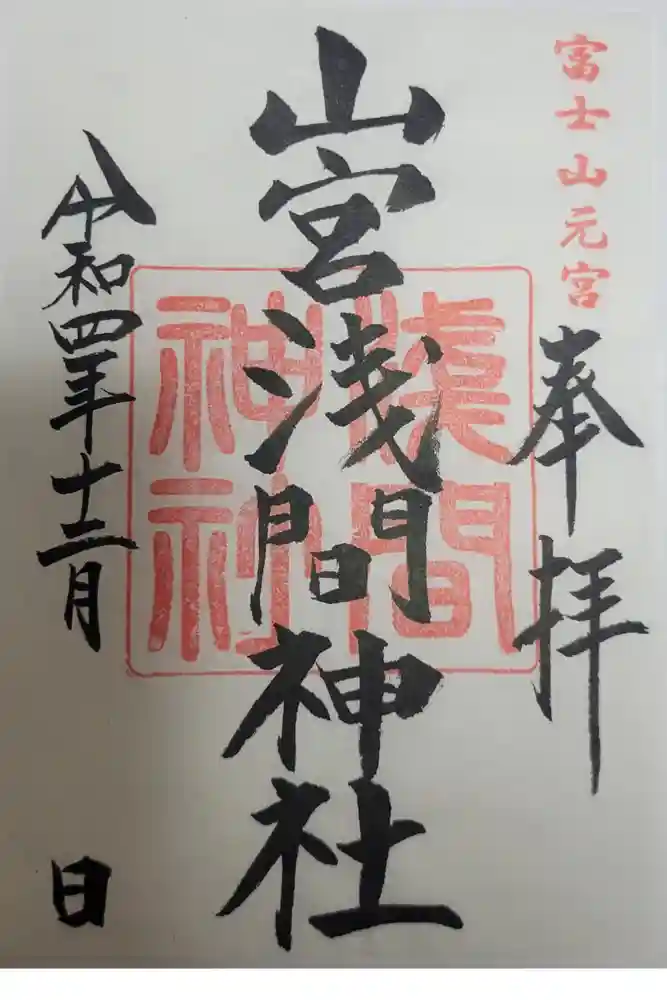 富士山元宮
奉拝
山宮浅間神社
浅間神社
令和四年十二月
日